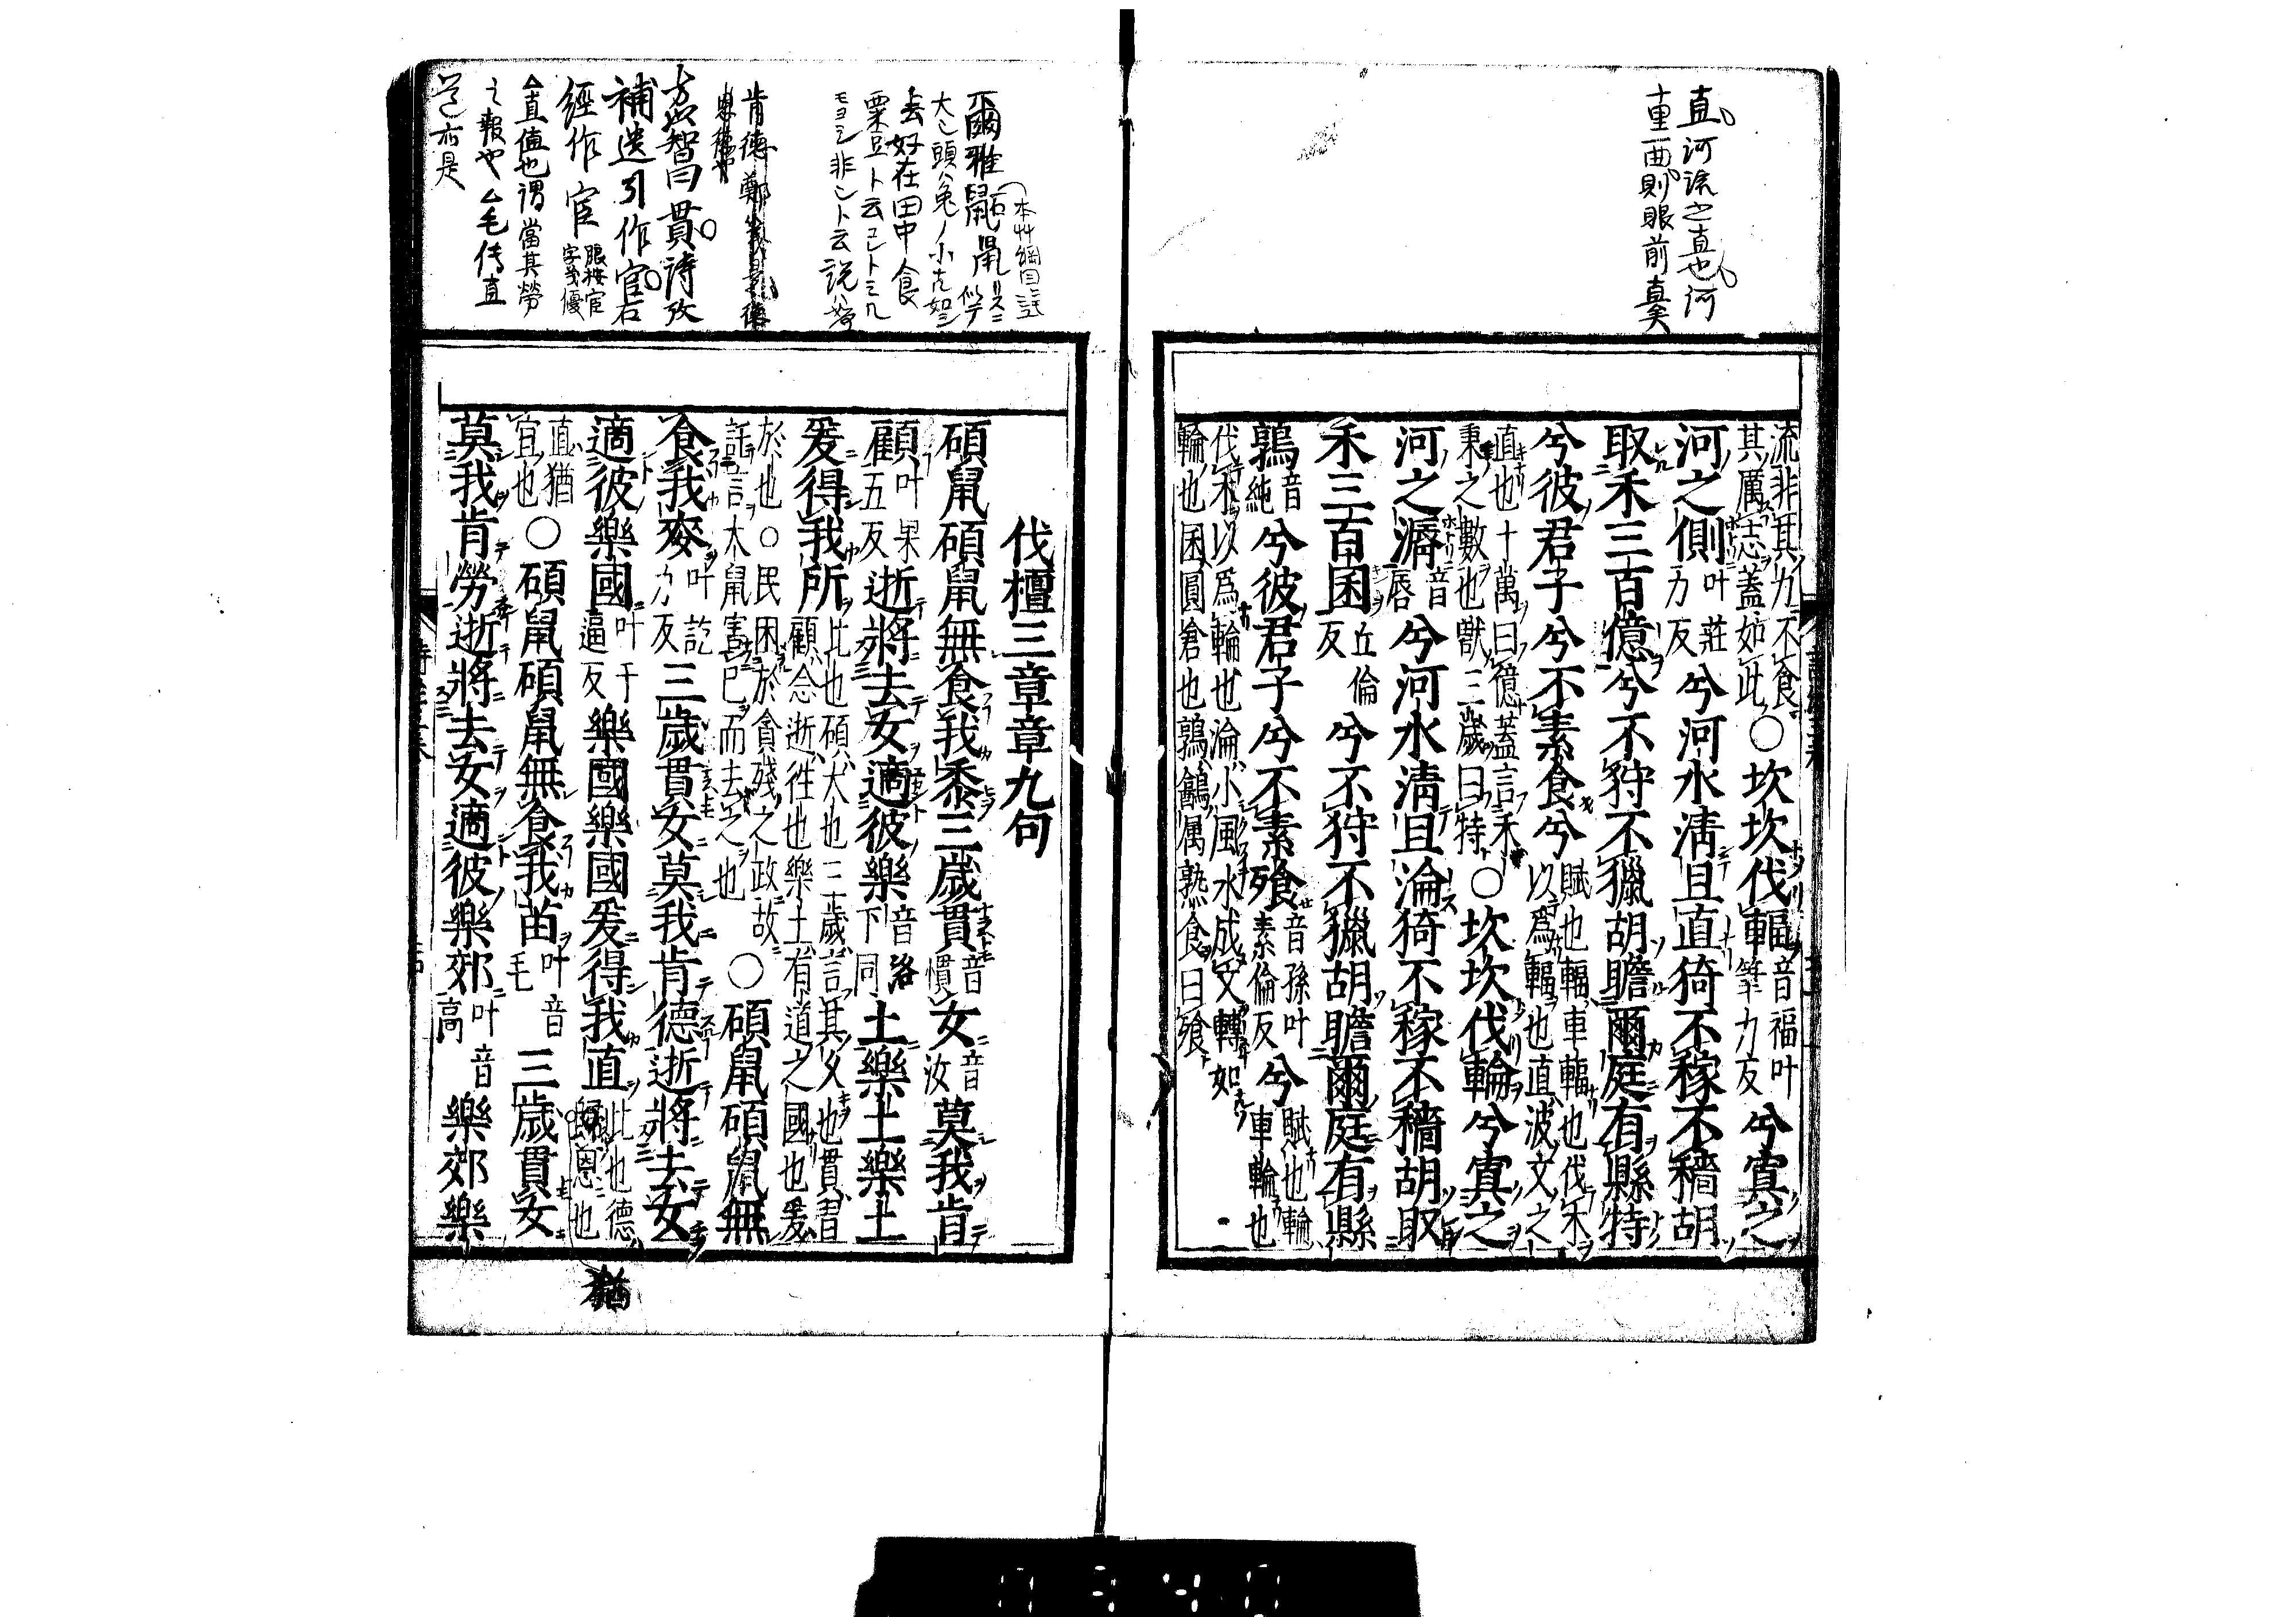 直河流之直也河
十里一曲則眼前直矣
流非其力不食
其厲志蓋如此○坎坎伐輻音福叶筆力反兮寘之
河之側叶莊力反兮河水淸且直猗不稼不穡胡
取禾三百億兮不狩不獵胡瞻爾庭有縣特
兮彼君子兮不素食兮賦也輻車輻也伐木以爲輻也直波文之
直也十萬曰億蓋言禾秉之數也獸三歲曰特○坎坎伐輪兮寘之
河之漘音脣兮河水淸且淪猗不稼不穡胡取
禾三百囷丘倫反兮不狩不獵胡瞻爾庭有縣
鶉音純兮彼君子兮不素飧音孫叶素倫反兮賦也輪車輪也
伐木以爲輪也淪小風水成文轉如
輪也囷圓倉也鶉鷂屬熟食曰飧
伐檀三章章九句
碩鼠碩鼠無食我黍三歲貫音慣女音汝莫我肯
顧叶果五反逝將去女適彼樂音洛下同土樂土樂土
爰得我所比也碩大也三歲言其久也貫習顧念逝往也樂土有道之國也爰
於也○民困於貪殘之政故託言大鼠害己而去之也○碩鼠碩鼠無
食我麥叶訖力反三歲貫女莫我肯德逝將去女
適彼樂國叶于逼反樂國樂國爰得我直比也德歸恩也
直猶宜也○碩鼠碩鼠無食我苗叶音毛三歲貫女
莫我肯勞逝將去女適彼樂郊叶音高樂郊樂
猶
爾雅鼫鼠
本艸綱目
大
頭兔
去好在田中食
粟豆ト云
非
ト云説
肯德鄭箋
方密智曰貫詩攷
補遺引作宦石
經作宦
△直值也謂當其勞
之報也△毛傳直
道亦是